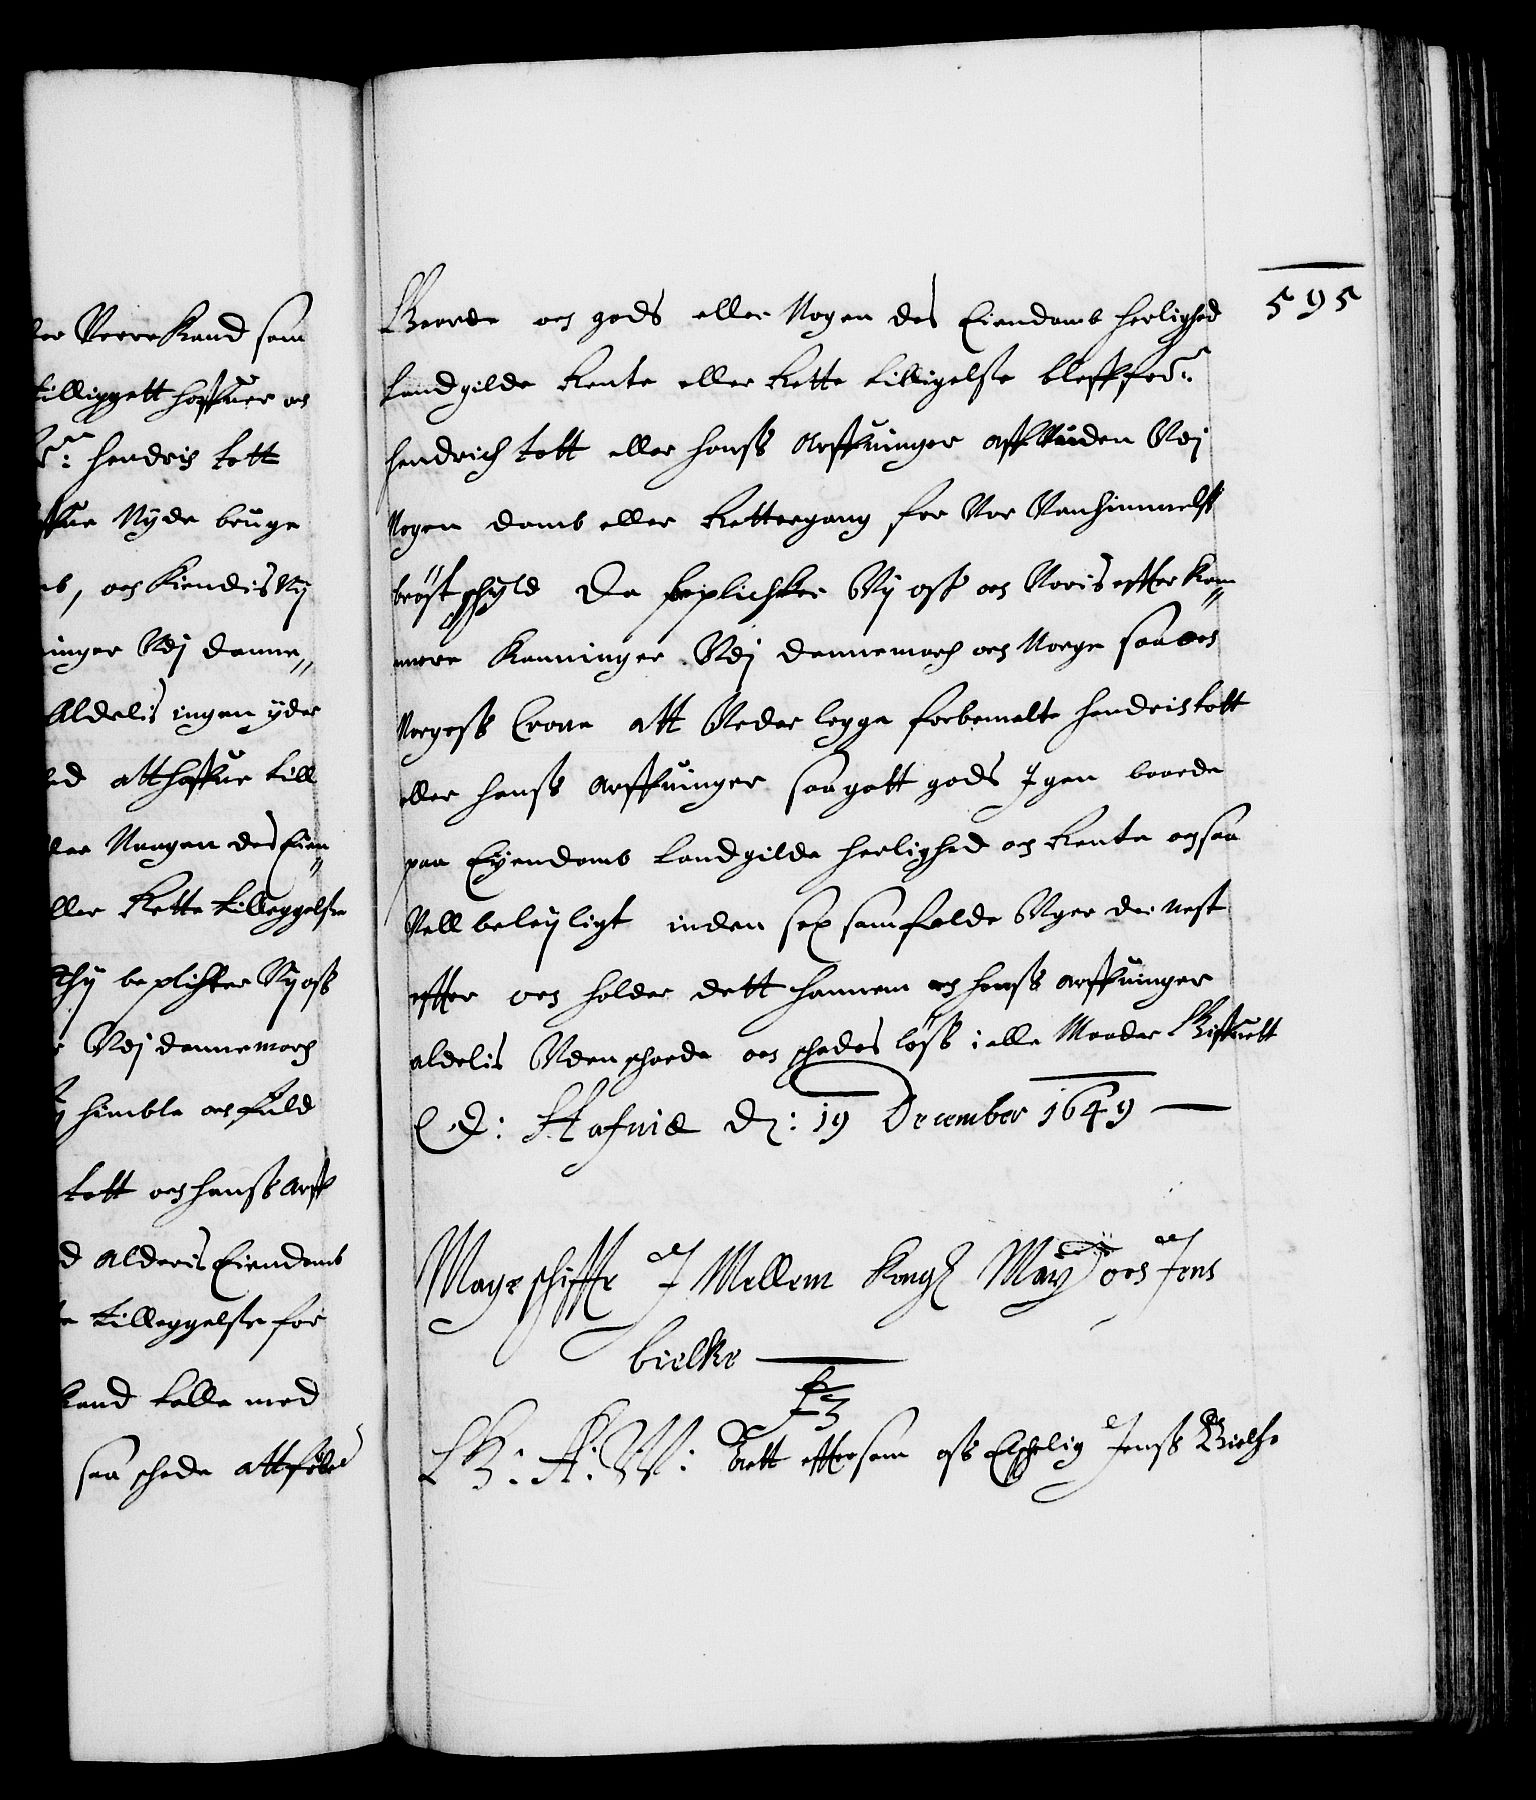 ler Verre Kand som
tilliggett haffuer oc
hr: Hendrich tott
ffue Nyde bruge
b, oc Kiendis Vij
inger Vdj Danne„
Aldelis ingen yder
ed att haffue till
ler Naagen des Eien„
ller Rette tilleggelse
Thij beplichter Vij oss
r Vdj Dannemarch
himble oc fuld
tott oc hanss arff
d Alderis Eiendomb
e tilleggelse for
Kand talle med
saa schede att forbe
595
Gaarde oc gods eller Nogen des Eiendomb herlighed
Landgilde Rente eller Rette tilligelse bleff for:ne
Hendrich tott eller hanss Arffuinger aff Vunden Vdj
Nogen domb eller Rettergang for Vor Vanhiimmelss
bröst schyld Da beplichter Vij oss oc Voris effter Kom„
mere Konninger Vdj Dannemarch oc Norge saa oc
Norgess Crone att Veder legge forbemelte Hendrich tott
eller hanss arffuinger saa gott gods Igen baade
paa Eyendomb Landgilde herlighed oc Rente oc saa
Vell beleyligt inden sex samfelde Vger der nest
effter oc holde dett hannem oc hanss arffuinger
aldelis Vden schaede oc schadesløss i alle Maader Giffuett
Hafniæ d: 19 December 1649
Mageschiffte I Mellem Kongl May:tt oc Jens
bielke
F3
G: A: W: att effttersom oss Elschelig Jenss Bielke